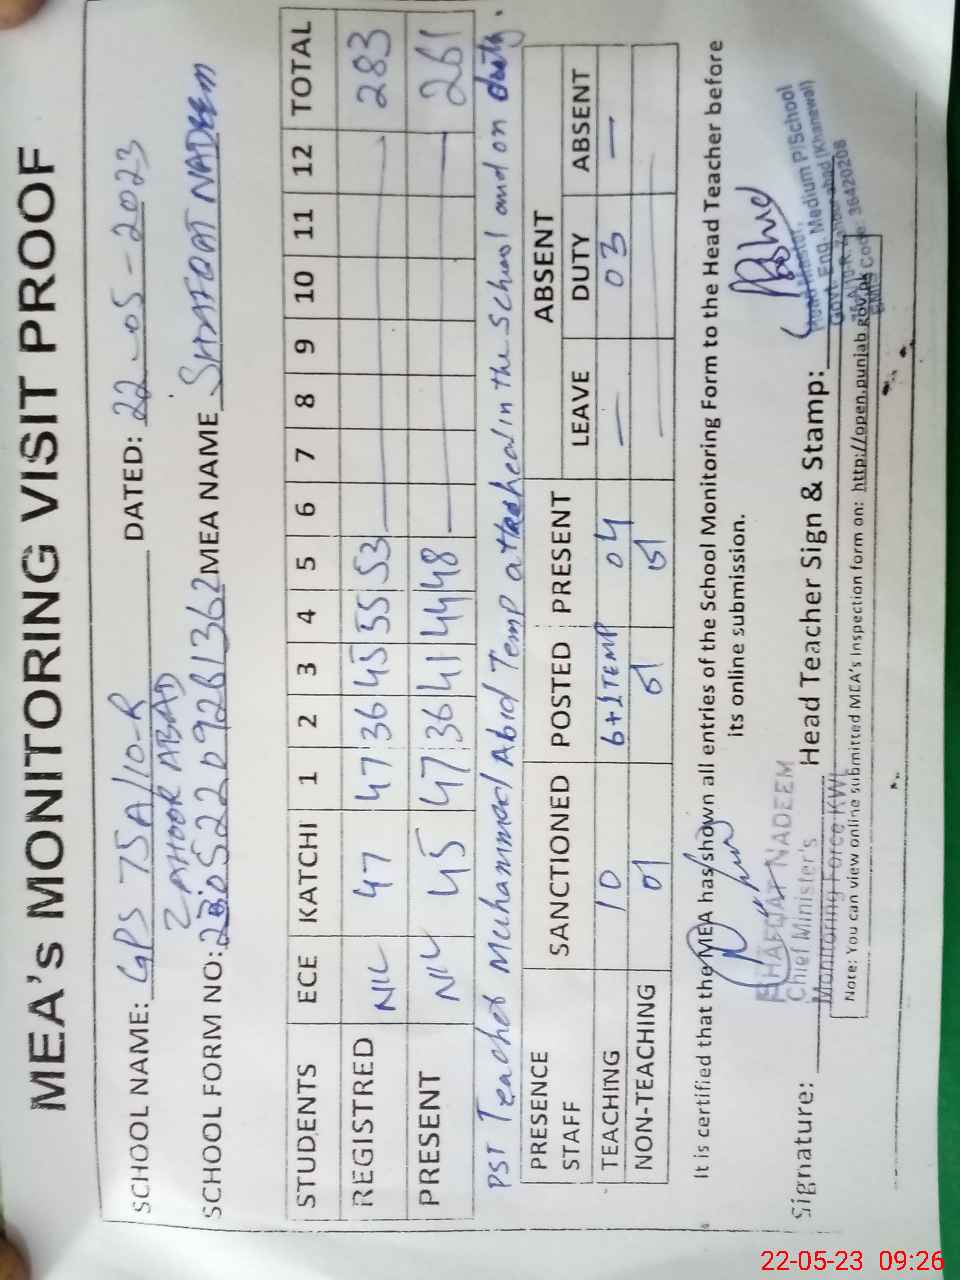 MEA's MONITORING VISIT PROOF
SCHOOL NAME: GPS 75A/10-R DATED: 22-05-2023
ZAHOOR ABAD
SCHOOL FORM NO: 22092261362 MEA NAME SHAFQAT NADEEM
STUDENTS ECE KATCHI 1 2 3 4 5 6 7 8 9 10 11 12 TOTAL
REGISTRED NIL 47 47 36 45 55 53 283
PRESENT NIL 45 47 36 41 44 48 261
PST Teacher Muhammad Abid Temp attached in the School and on duty.
PRESENCE STAFF SANCTIONED POSTED PRESENT ABSENT
LEAVE DUTY ABSENT
TEACHING 10 6+1TEMP 04 — 03 —
NON-TEACHING 01 01 01
It is certified that the MEA has shown all entries of the School Monitoring Form to the Head Teacher before
its online submission.
SHAFQAT NADEEM
Chief Minister's
Monitoring Force KWL
Signature: Head Teacher Sign & Stamp:
Head Master,
Govt. Eng. Medium P/School
75-A/10-R, Zahoor abad (Khanewal)
EMIS Code: 36420208
Note: You can view online submitted MEA's Inspection form on: http://open.punjab.gov.pk
22-05-23 09:26